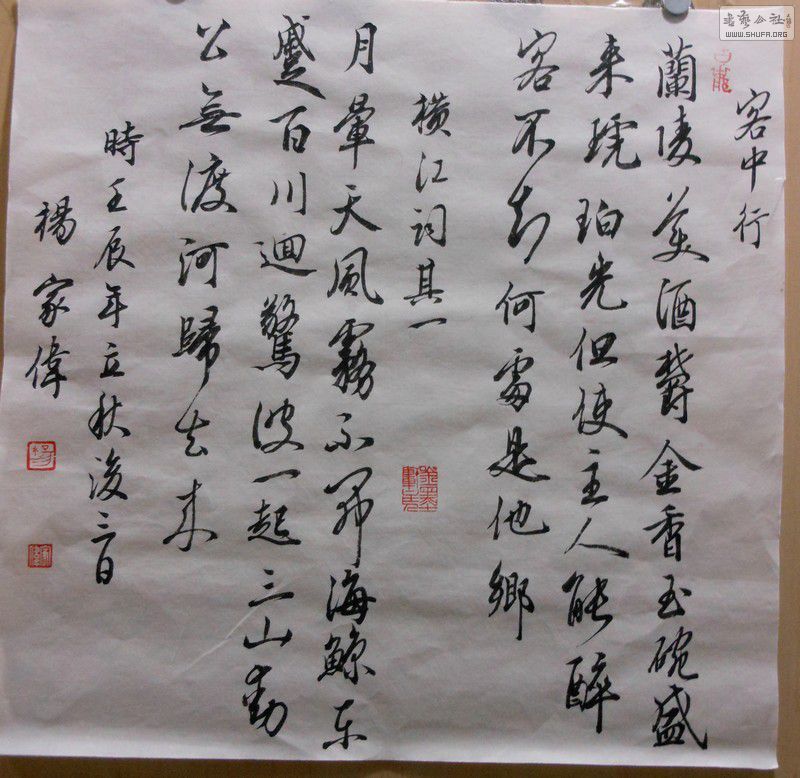 客中行
蘭陵美酒鬱金香玉碗盛
来琥珀光但使主人能醉
客不知何處是他鄉
橫江詞其一
月暈天風霧不開海鯨東
蹙百川迴驚波一起三山動
公無渡河歸去來
時壬辰年立秋後三日
楊家偉
書藝公社
WWW.SHUFA.ORG